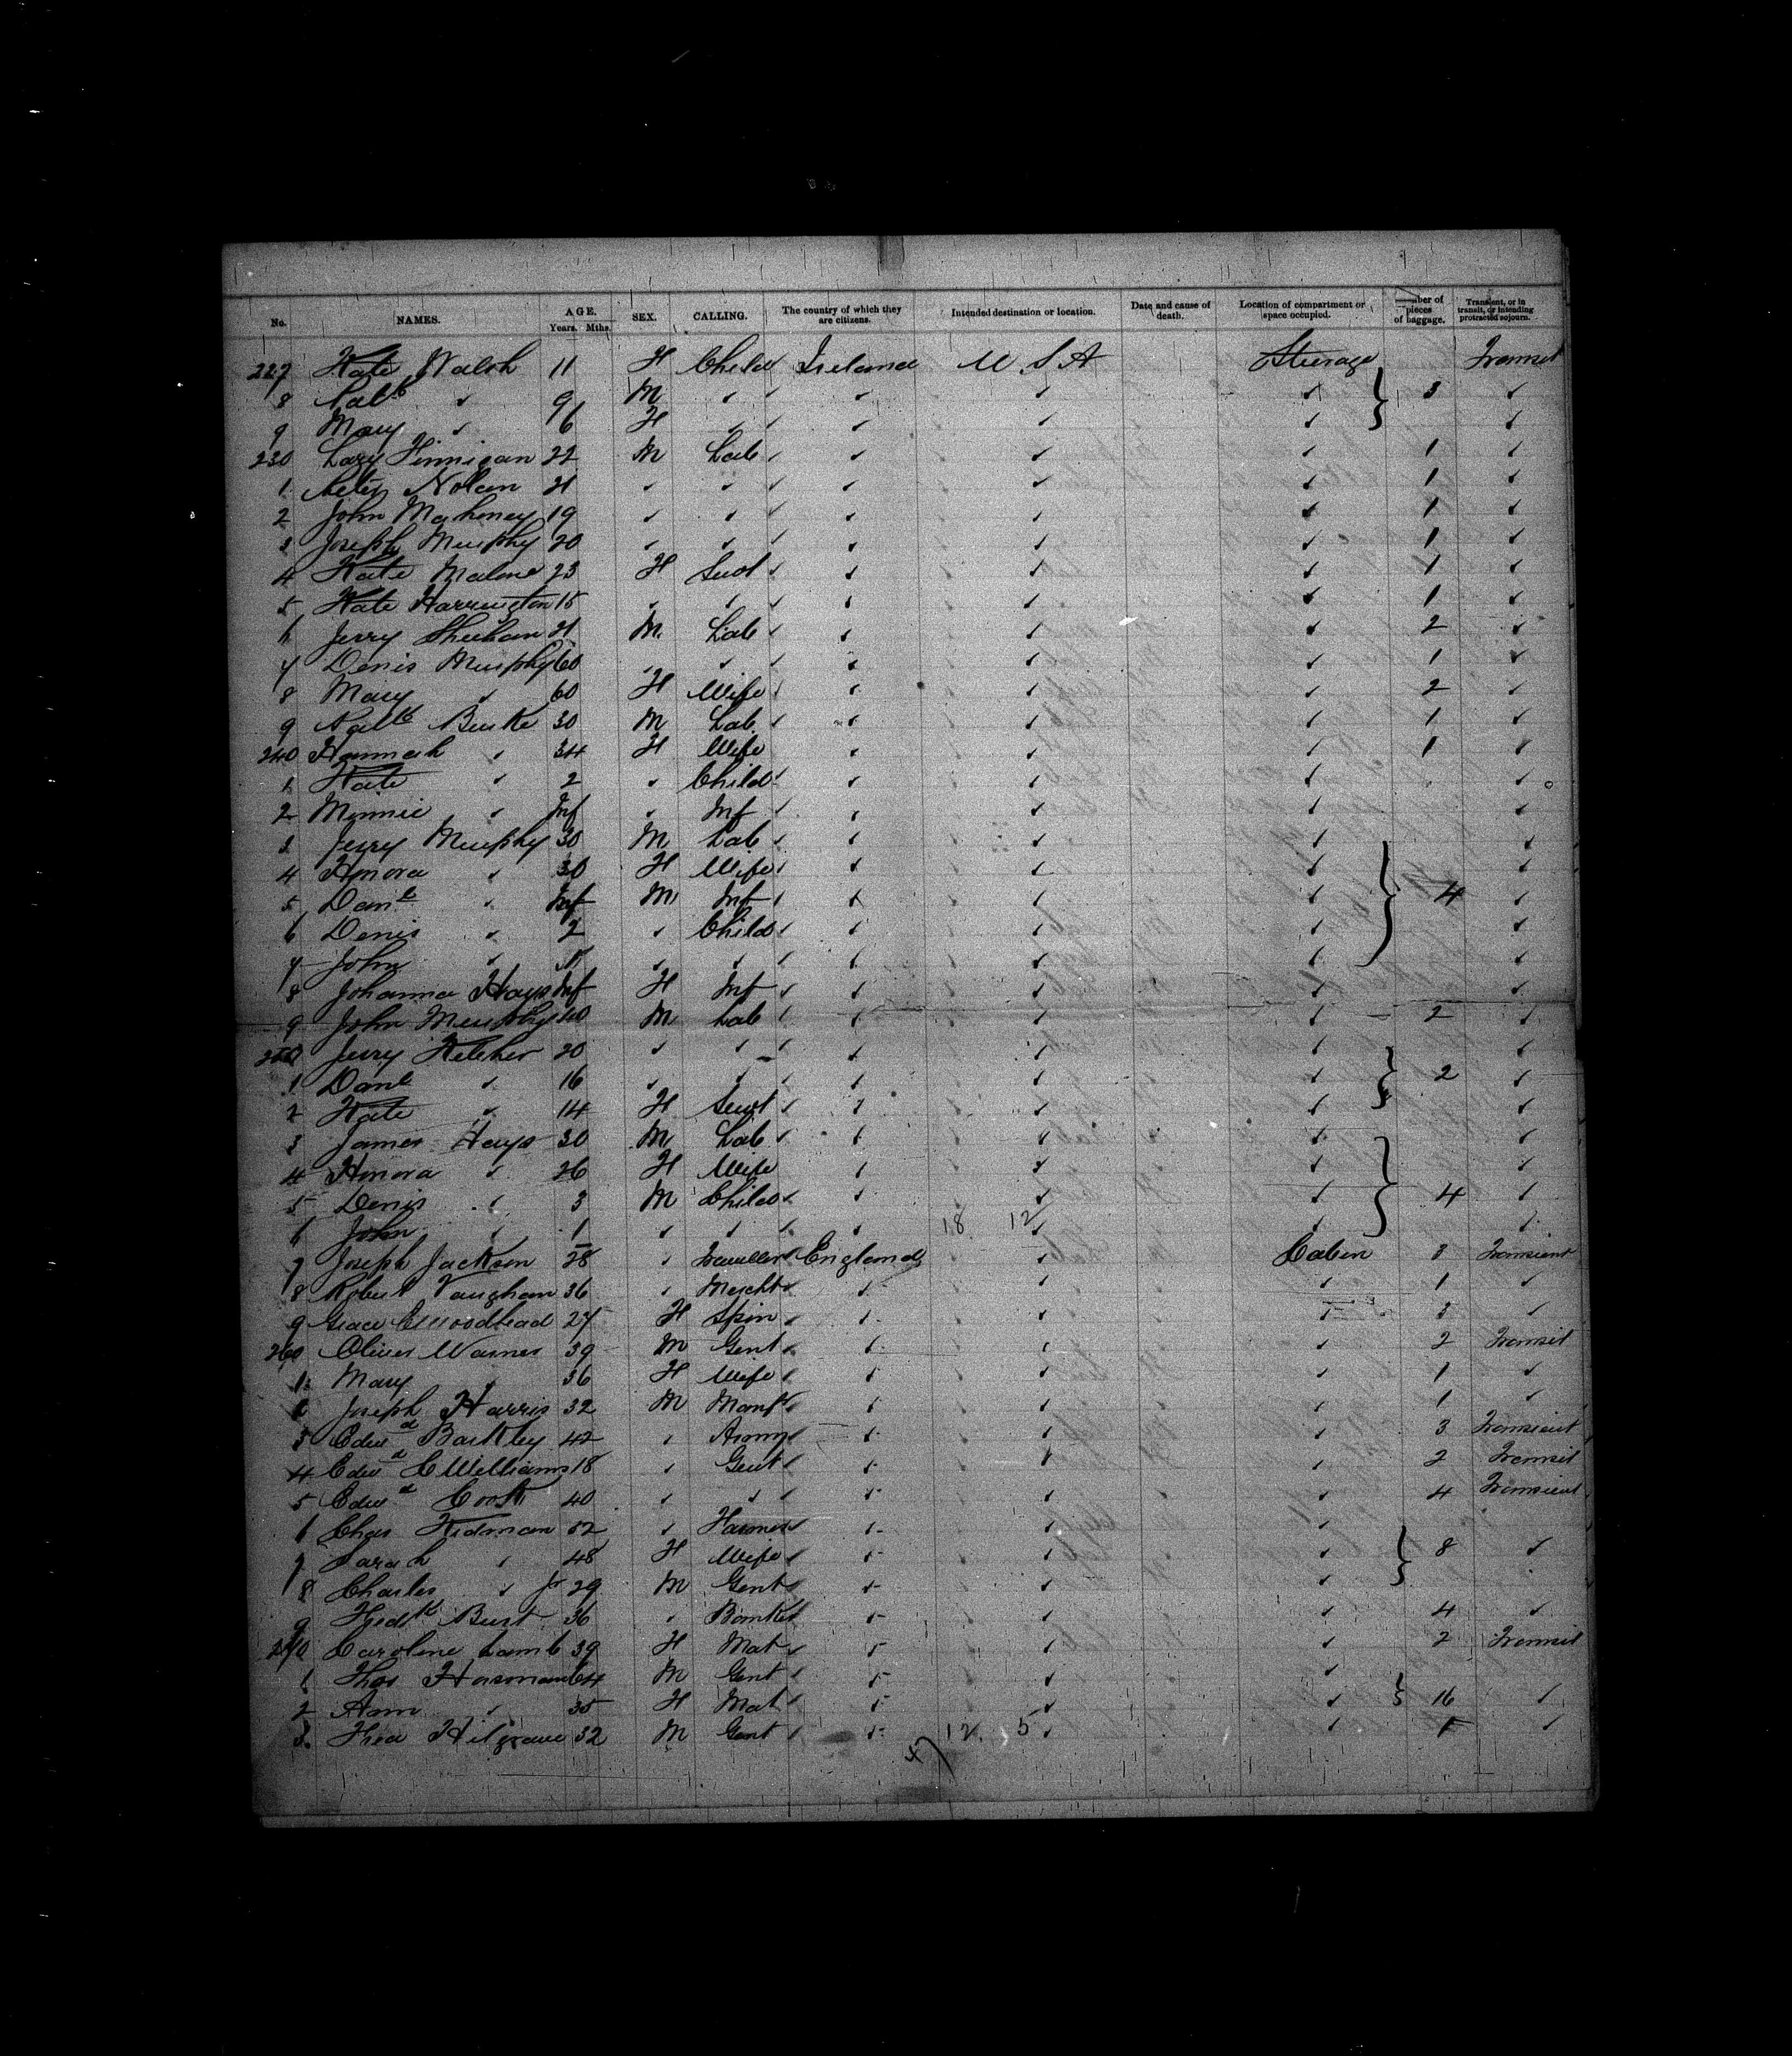 No. NAMES. AGE. Years. Mths. SEX. CALLING. The country of which they are citizens. Intended destination or location. Date and cause of death. Location of compartment or space occupied. Number of pieces of baggage. Transient, or in transit, or intending protracted sojourn.
227 Kate Walsh 11 F Child Ireland U S A Steerage Transit
8 ✓ 9 M ✓ ✓ ✓ ✓ 3 ✓
9 Mary ✓ 6 F ✓ ✓ ✓ ✓ ✓
230 Lazy Finnigan 22 M Lab ✓ ✓ ✓ 1 ✓
1 Peter Nolan 21 ✓ ✓ ✓ ✓ ✓ 1 ✓
2 John Mahoney 19 ✓ ✓ ✓ ✓ ✓ 1 ✓
3 Joseph Murphy 20 ✓ ✓ ✓ ✓ ✓ 1 ✓
4 Kate Malone 23 F Servt ✓ ✓ ✓ 1 ✓
5 Kate Harrington 15 ✓ ✓ ✓ ✓ ✓ 1 ✓
6 Jerry Sheehan 21 M Lab ✓ ✓ ✓ 2 ✓
7 Denis Murphy 60 ✓ ✓ ✓ ✓ ✓ 1 ✓
8 Mary ✓ 60 F Wife ✓ ✓ ✓ 2 ✓
9 Burke 30 M Lab ✓ ✓ ✓ 1 ✓
240 Hannah ✓ 34 F Wife ✓ ✓ ✓ 1 ✓
1 Kate ✓ 2 ✓ Child ✓ ✓ ✓ ✓
2 Minnie ✓ Inf ✓ Inf ✓ ✓ ✓ ✓
3 Jerry Murphy 30 M Lab ✓ ✓ ✓ ✓
4 Honora ✓ 30 F Wife ✓ ✓ ✓ ✓
5 Danl ✓ Inf M Inf ✓ ✓ ✓ 4 ✓
6 Denis ✓ 2 ✓ Child ✓ ✓ ✓ ✓
7 John ✓ ✓ ✓ ✓ ✓ ✓ ✓
8 Johanna Hays Inf F Inf ✓ ✓ ✓ ✓
9 John Murphy 40 M Lab ✓ ✓ ✓ 2 ✓
250 Jerry Keleher 20 ✓ ✓ ✓ ✓ ✓ ✓
1 Danl ✓ 16 ✓ ✓ ✓ ✓ ✓ 2 ✓
2 Kate ✓ 14 F Servt ✓ ✓ ✓ ✓
3 James Hays 30 M Lab ✓ ✓ ✓ ✓
4 Honora ✓ 26 F Wife ✓ ✓ ✓ ✓
5 Denis ✓ 3 M Child ✓ ✓ ✓ 4 ✓
6 John ✓ 1 ✓ ✓ ✓ 18 12 ✓ ✓ ✓
7 Joseph Jackson 28 ✓ Traveller England ✓ Cabin 3 Transient
8 Robert Vaughan 36 ✓ Mercht ✓ ✓ ✓ 1 ✓
9 Grace E Woodhead 27 F Spin ✓ ✓ ✓ 3 ✓
260 Oliver Warner 39 M Gent ✓ ✓ ✓ 2 Transit
1 Mary ✓ 36 F Wife ✓ ✓ ✓ 1 ✓
2 Joseph Harris 32 M Manfr ✓ ✓ 1 ✓
3 Edwd Barkley 42 ✓ Army ✓ ✓ ✓ 3 Transient
4 Edwd C Williams 18 ✓ Gent ✓ ✓ ✓ 2 Transit
5 Edwd Cook 40 ✓ ✓ ✓ ✓ ✓ 4 Transient
6 Chas Kidman 52 ✓ Farmer ✓ ✓ ✓
7 Sarah ✓ 48 F Wife ✓ ✓ ✓ 8 ✓
8 Charles ✓ Jr 29 M Gent ✓ ✓ ✓
9 Fredk Burt 36 ✓ Banker ✓ ✓ ✓ 4 ✓
270 Caroline Lamb 39 F Mat ✓ ✓ ✓ 2 Transit
1 Thos Horsman 64 M Gent ✓ ✓ ✓
2 Ann ✓ 35 F Mat ✓ ✓ ✓ 16 ✓
3 Hilgrave 32 M Gent ✓ 12 5 ✓ ✓ 1 ✓
47